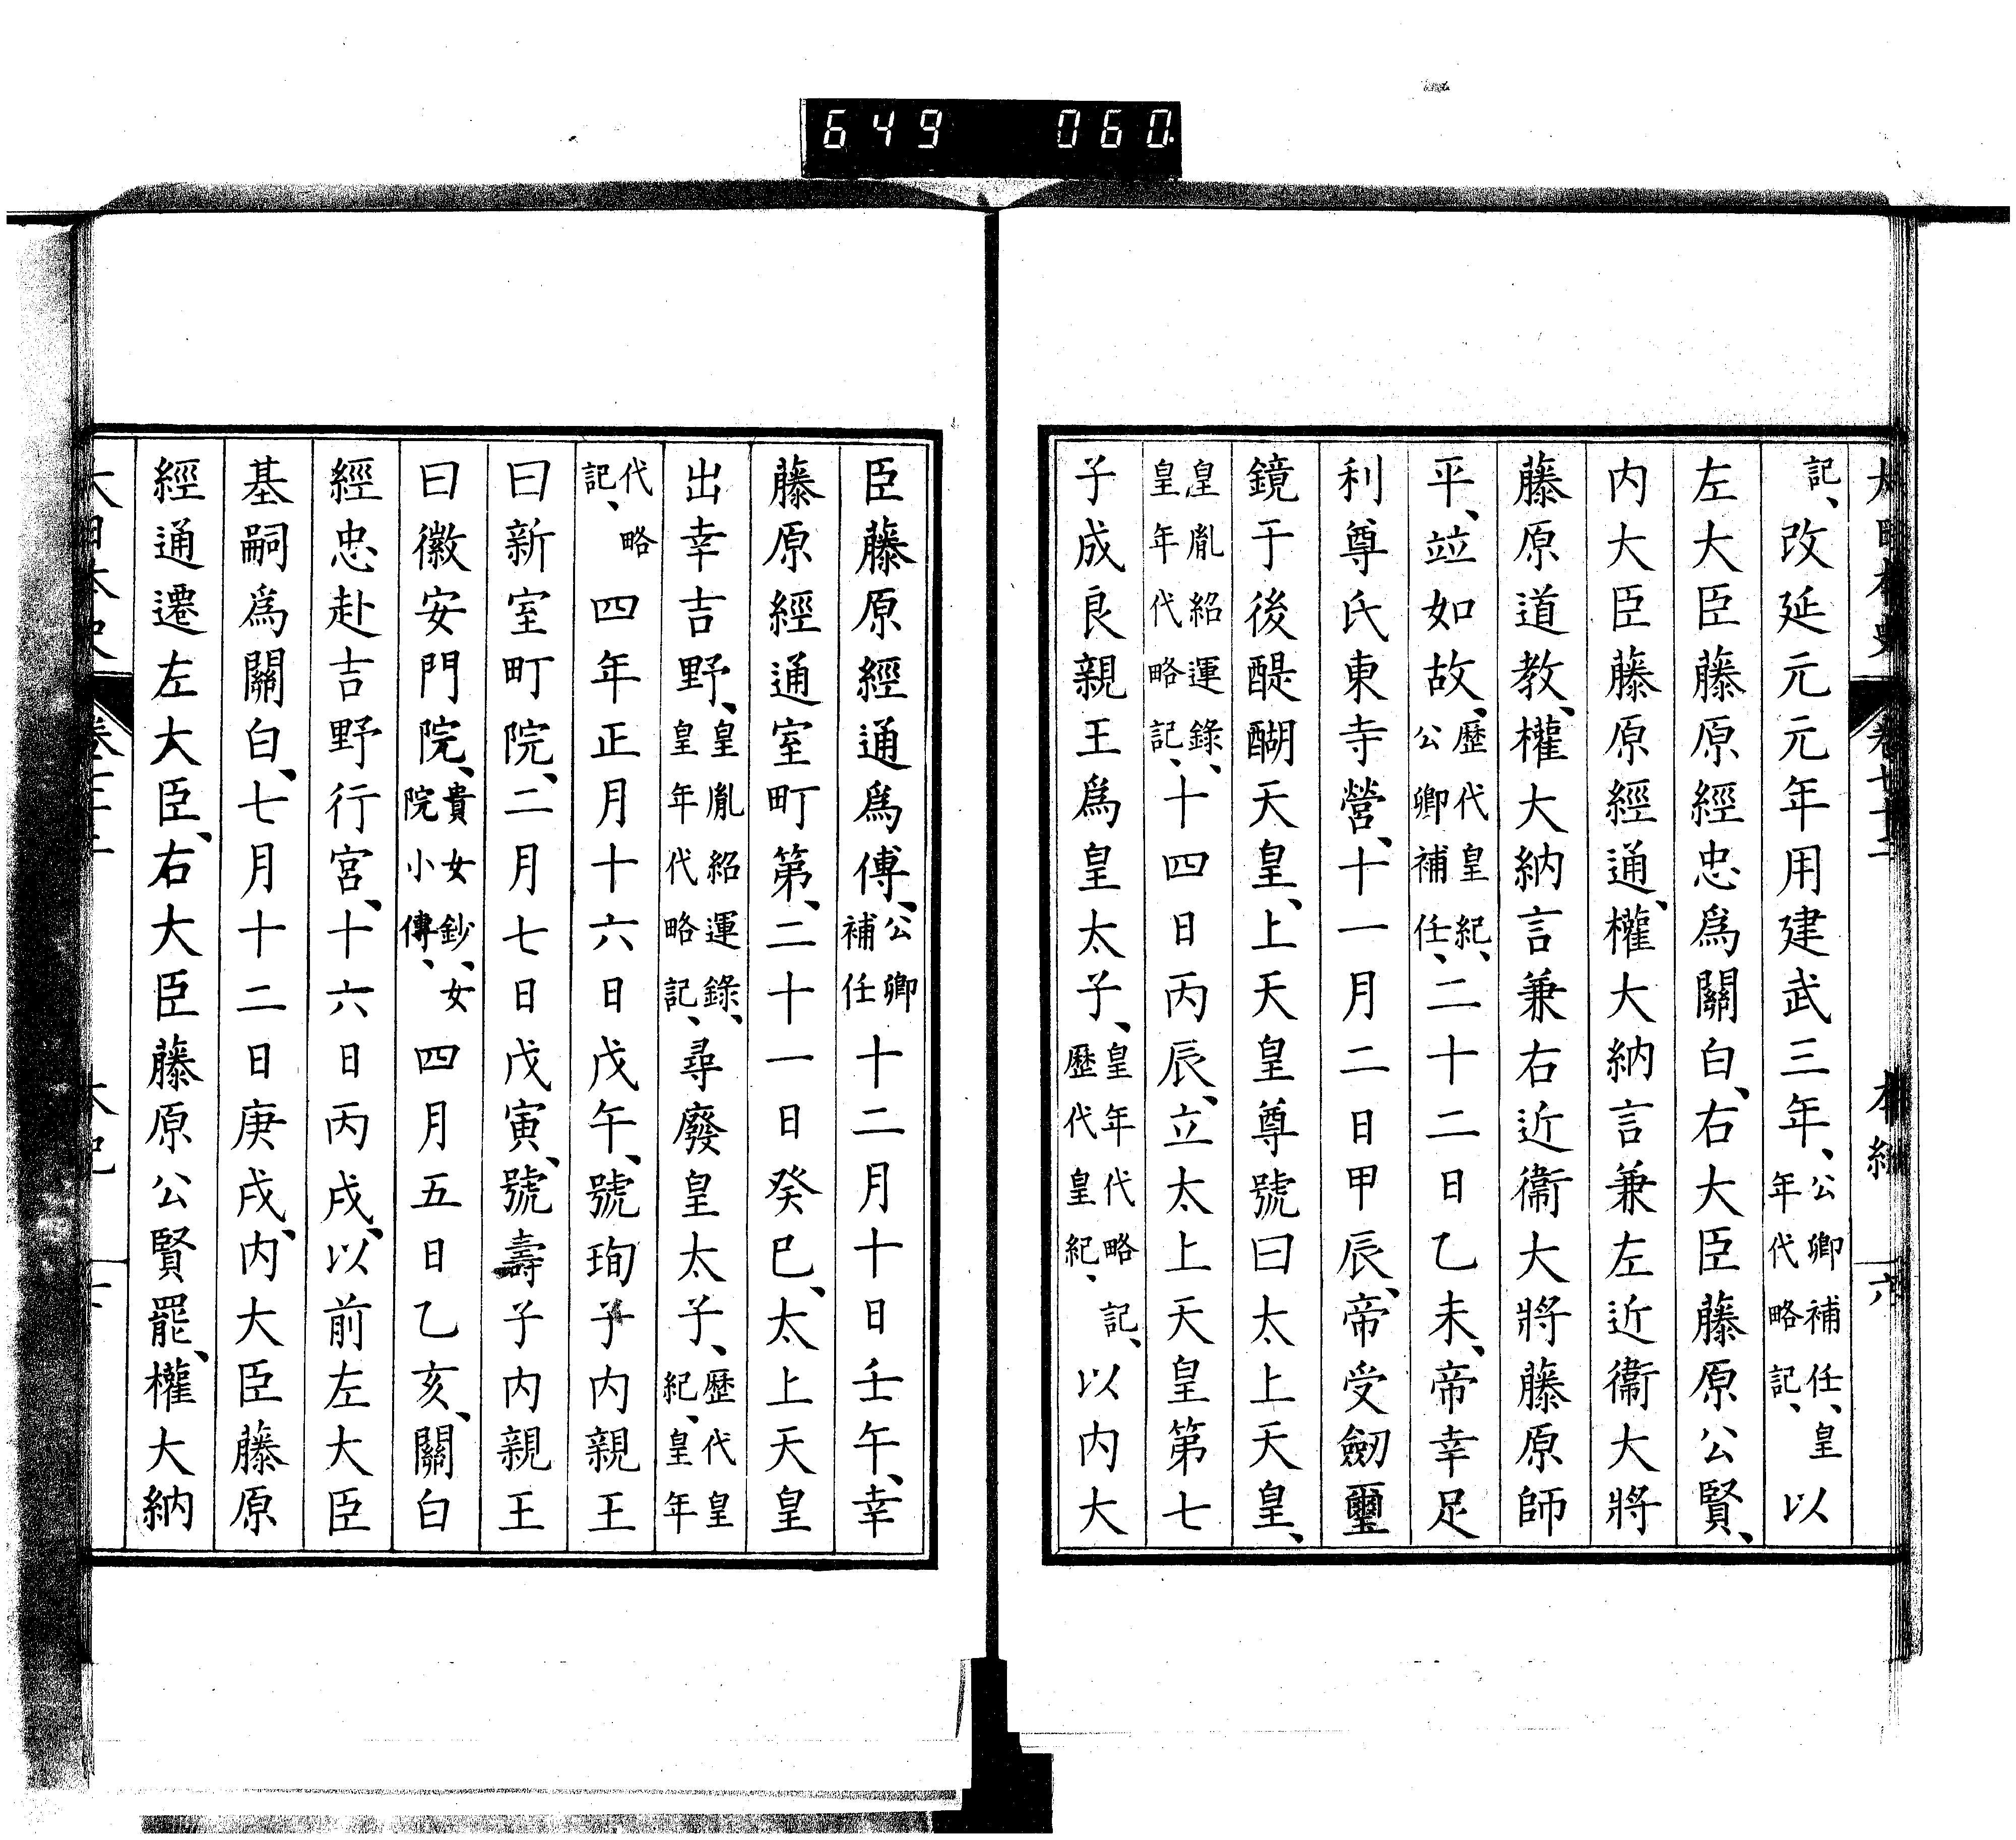 649 060
大日本史 卷七十二 本紀 六
記、改延元元年用建武三年、公卿補任、皇年代略記、以
左大臣藤原經忠爲關白、右大臣藤原公賢、
内大臣藤原經通、權大納言兼左近衞大將
藤原道教、權大納言兼右近衞大將藤原師
平、竝如故、歷代皇紀、公卿補任、二十二日乙未、帝幸足
利尊氏東寺營、十一月二日甲辰、帝受劒璽
鏡于後醍醐天皇、上天皇尊號曰太上天皇、
皇胤紹運錄、皇年代略記、十四日丙辰、立太上天皇第七
子成良親王爲皇太子、皇年代略記、歷代皇紀、以内大
臣藤原經通爲傅、公卿補任十二月十日壬午、幸
藤原經通室町第、二十一日癸巳、太上天皇
出幸吉野、皇胤紹運錄、皇年代略記、尋廢皇太子、歷代皇紀、皇年
代略記、四年正月十六日戊午、號珣子内親王
曰新室町院、二月七日戊寅、號壽子内親王
曰徽安門院、貴女鈔、女院小傳、四月五日乙亥、關白
經忠赴吉野行宮、十六日丙戌、以前左大臣
基嗣爲關白、七月十二日庚戌、内大臣藤原
經通遷左大臣、右大臣藤原公賢罷、權大納
大日本史